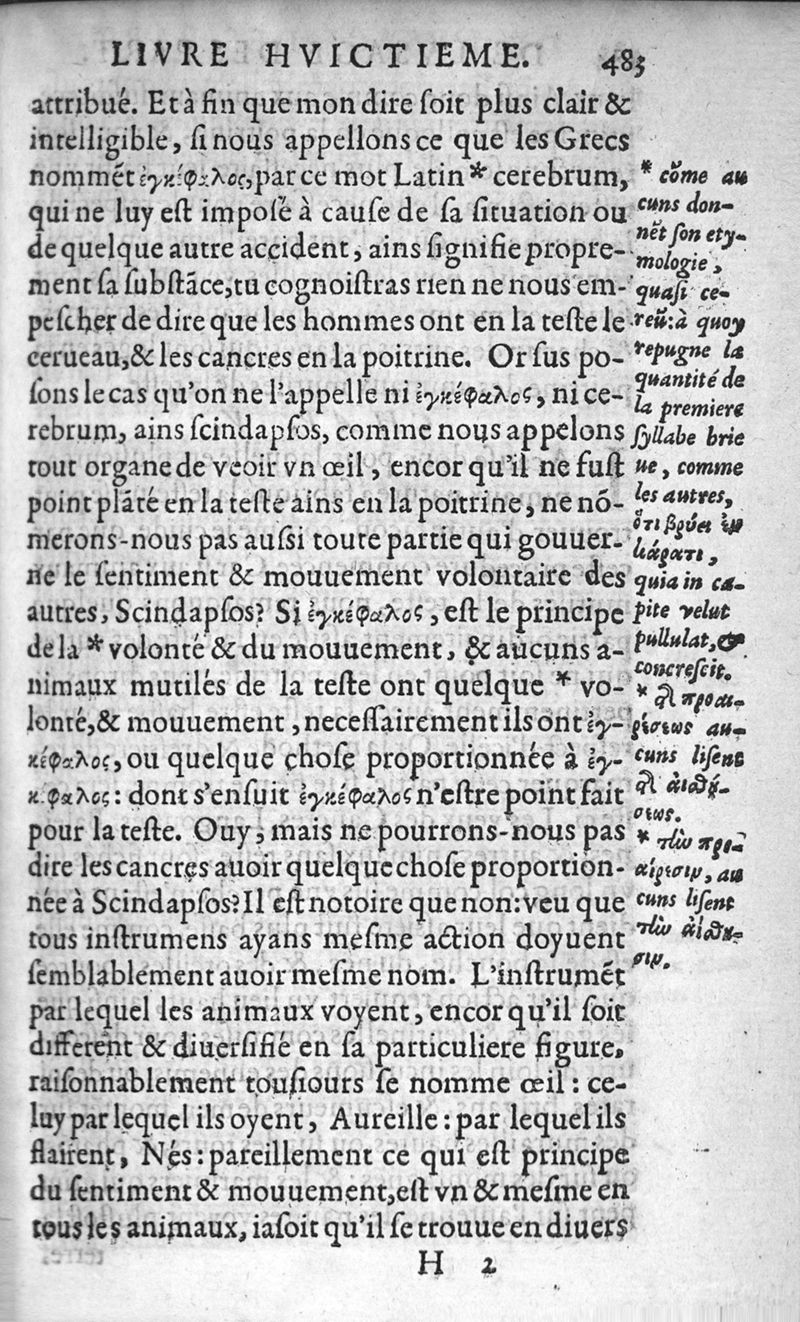 LIVRE HVICTIEME. 483
attribué. Et à fin que mon dire ſoit plus clair &
intelligible, ſi nous appellons ce que les Grecs
nommẽt ἐγκέφαλος, par ce mot Latin * cerebrum,
qui ne luy eſt impoſé à cauſe de ſa ſituation ou
de quelque autre accident, ains ſignifie propre-
ment ſa ſubſtãce, tu cognoiſtras rien ne nous em-
peſcher de dire que les hommes ont en la teſte le
cerueau, & les cancres en la poitrine. Or ſus po-
ſons le cas qu'on ne l'appelle ni ἐγκέφαλος, ni ce-
rebrum, ains ſcindapſos, comme nous appelons
tout organe de veoir vn œil, encor qu'il ne fuſt
point plãté en la teſte ains en la poitrine, ne nõ-
merons-nous pas auſsi toute partie qui gouuer-
ne le ſentiment & mouuement volontaire des
autres, Scindapſos? Si ἐγκέφαλος, eſt le principe
de la * volonté & du mouuement, & aucuns a-
nimaux mutilés de la teſte ont quelque * vo-
lonté, & mouuement, neceſſairement ils ont ἐγ-
κέφαλος, ou quelque choſe proportionnée à ἐγ-
κέφαλος: dont s'enſuit ἐγκέφαλος n'eſtre point fait
pour la teſte. Ouy, mais ne pourrons-nous pas
dire les cancres auoir quelque choſe proportion-
née à Scindapſos? Il eſt notoire que non: veu que
tous inſtrumens ayans meſme action doyuent
ſemblablement auoir meſme nom. L'inſtrumẽt
par lequel les animaux voyent, encor qu'il ſoit
different & diuerſifié en ſa particuliere figure,
raiſonnablement touſiours ſe nomme œil: ce-
luy par lequel ils oyent, Aureille: par lequel ils
flairent, Nés: pareillement ce qui eſt principe
du ſentiment & mouuement, eſt vn & meſme en
tous les animaux, iaſoit qu'il ſe trouue en diuers
H 2
* cõme au
cuns don-
nẽt ſon ety-
mologie,
quaſi ce-
reũ: à quoy
repugne la
quantité de
la premiere
ſyllabe brie
ue, comme
les autres,
ὅτι βρύει
quia in ca-
pite velut
pullulat, &
concreſcit.
* προαι-
ρέσεως au-
cuns liſent
αἰσθή-
σεως.
* τὴν προ-
αίρεσιν, au
cuns liſent
τὴν αἴσθη-
σιν.